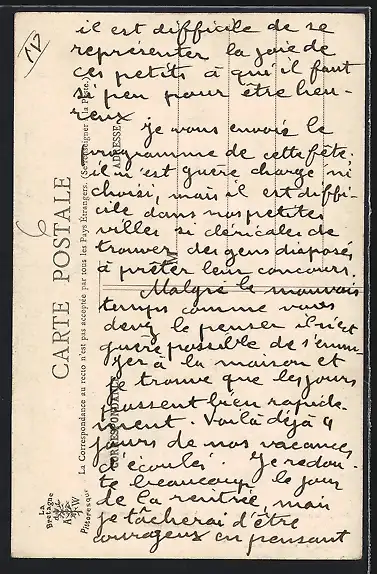 IV
il est difficile de se
représenter la joie de
ces petits à qui il faut
si peu pour être heu-
reux
je vous envoie le
programme de cette fête;
il n'est guère chargé ni
choisi, mais il est diffi-
cile dans nos petites
villes si cléricales de
trouver des gens disposés
à prêter leur concours.
Malgré le mauvais
temps comme vous
devez le penser il n'est
guère possible de s'ennu-
yer à la maison et
je trouve que les jours
passent bien rapide-
ment. Voilà déjà 4
jours de nos vacances
d'écoulés. Je redou-
te beaucoup le jour
de la rentrée, mais
je tâcherai d'être
courageux en pensant
CARTE POSTALE
La Correspondance au recto n'est pas acceptée par tous les Pays Étrangers. (Se renseigner à la Poste.)
CORRESPONDANCE
ADRESSE
La
Bretagne
A W
Pittoresque